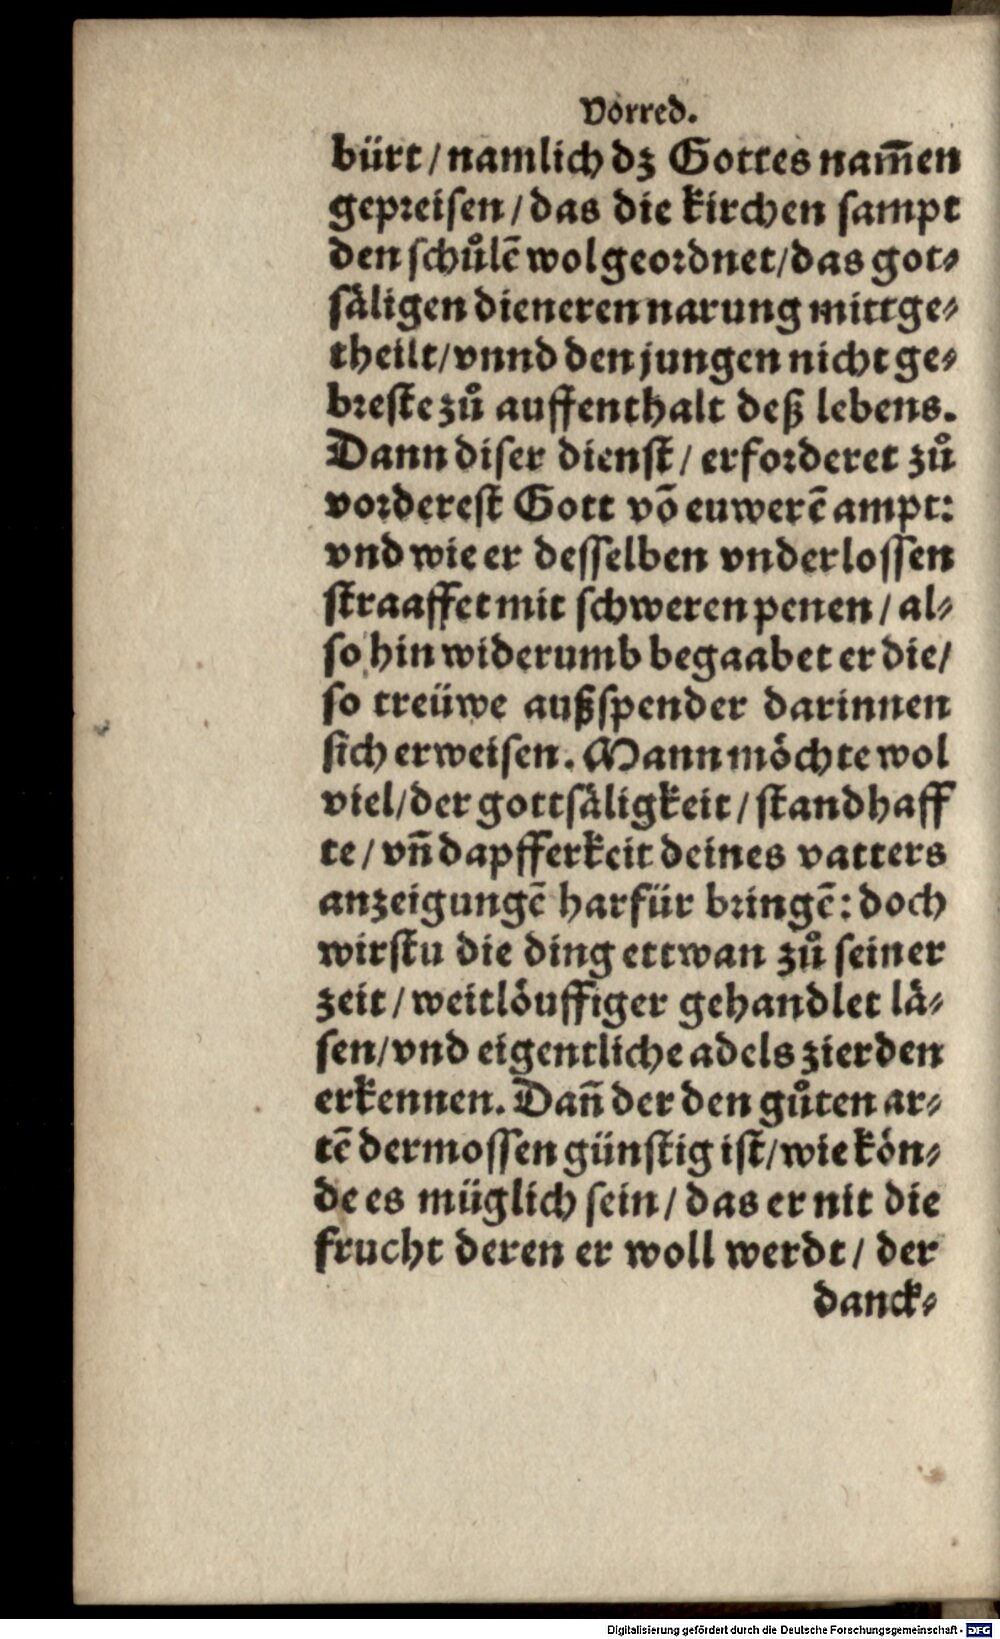 Vorred.
bürt / namlich dz Gottes nam̃en
gepreisen / das die kirchen sampt
den schůlẽ wol geordnet / das got⸗
säligen dieneren narung mittge⸗
theilt / vnnd den jungen nicht ge⸗
breste zů auffenthalt deß lebens.
Dann diser dienst / erforderet zů
vorderest Gott võ euwerẽ ampt:
vnd wie er desselben vnderlossen
straaffet mit schweren penen / al⸗
so hinwiderumb begaabet er die /
so treüwe außspender darinnen
sich erweisen. Mann möchte wol
viel / der gottsäligkeit / standhaff
te / vñ dapfferkeit deines vatters
anzeigungẽ harfür bringẽ: doch
wirstu die ding ettwan zů seiner
zeit / weitlöuffiger gehandlet lä⸗
sen / vnd eigentliche adels zierden
erkennen. Dañ der den gůten ar⸗
tẽ dermossen günstig ist / wie kön⸗
de es müglich sein / das er nit die
frucht deren er woll werdt / der
danck⸗
Digitalisierung gefördert durch die Deutsche Forschungsgemeinschaft - DFG